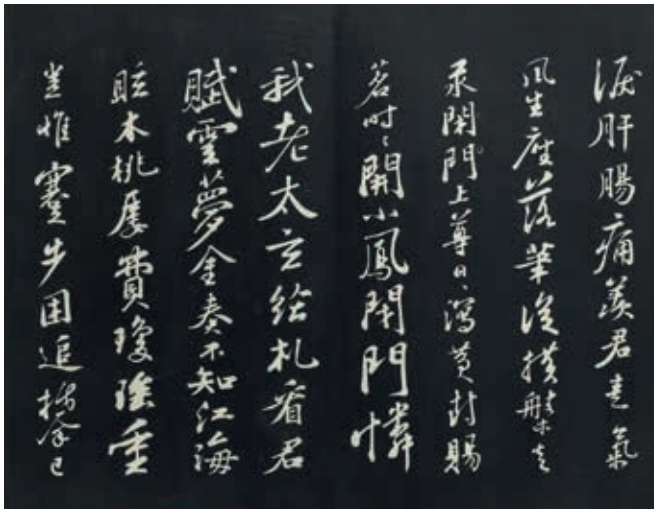 淚肝腸痛羨君意氣
風生座落筆縱橫盤走
汞閑門上尊日〻瀉黃封賜
茗時〻開小鳳閉門憐
我老太玄給札看君
賦雲夢金奏不知江海
眩木桃屢費瓊瑤重
豈惟蹇步困追攀已